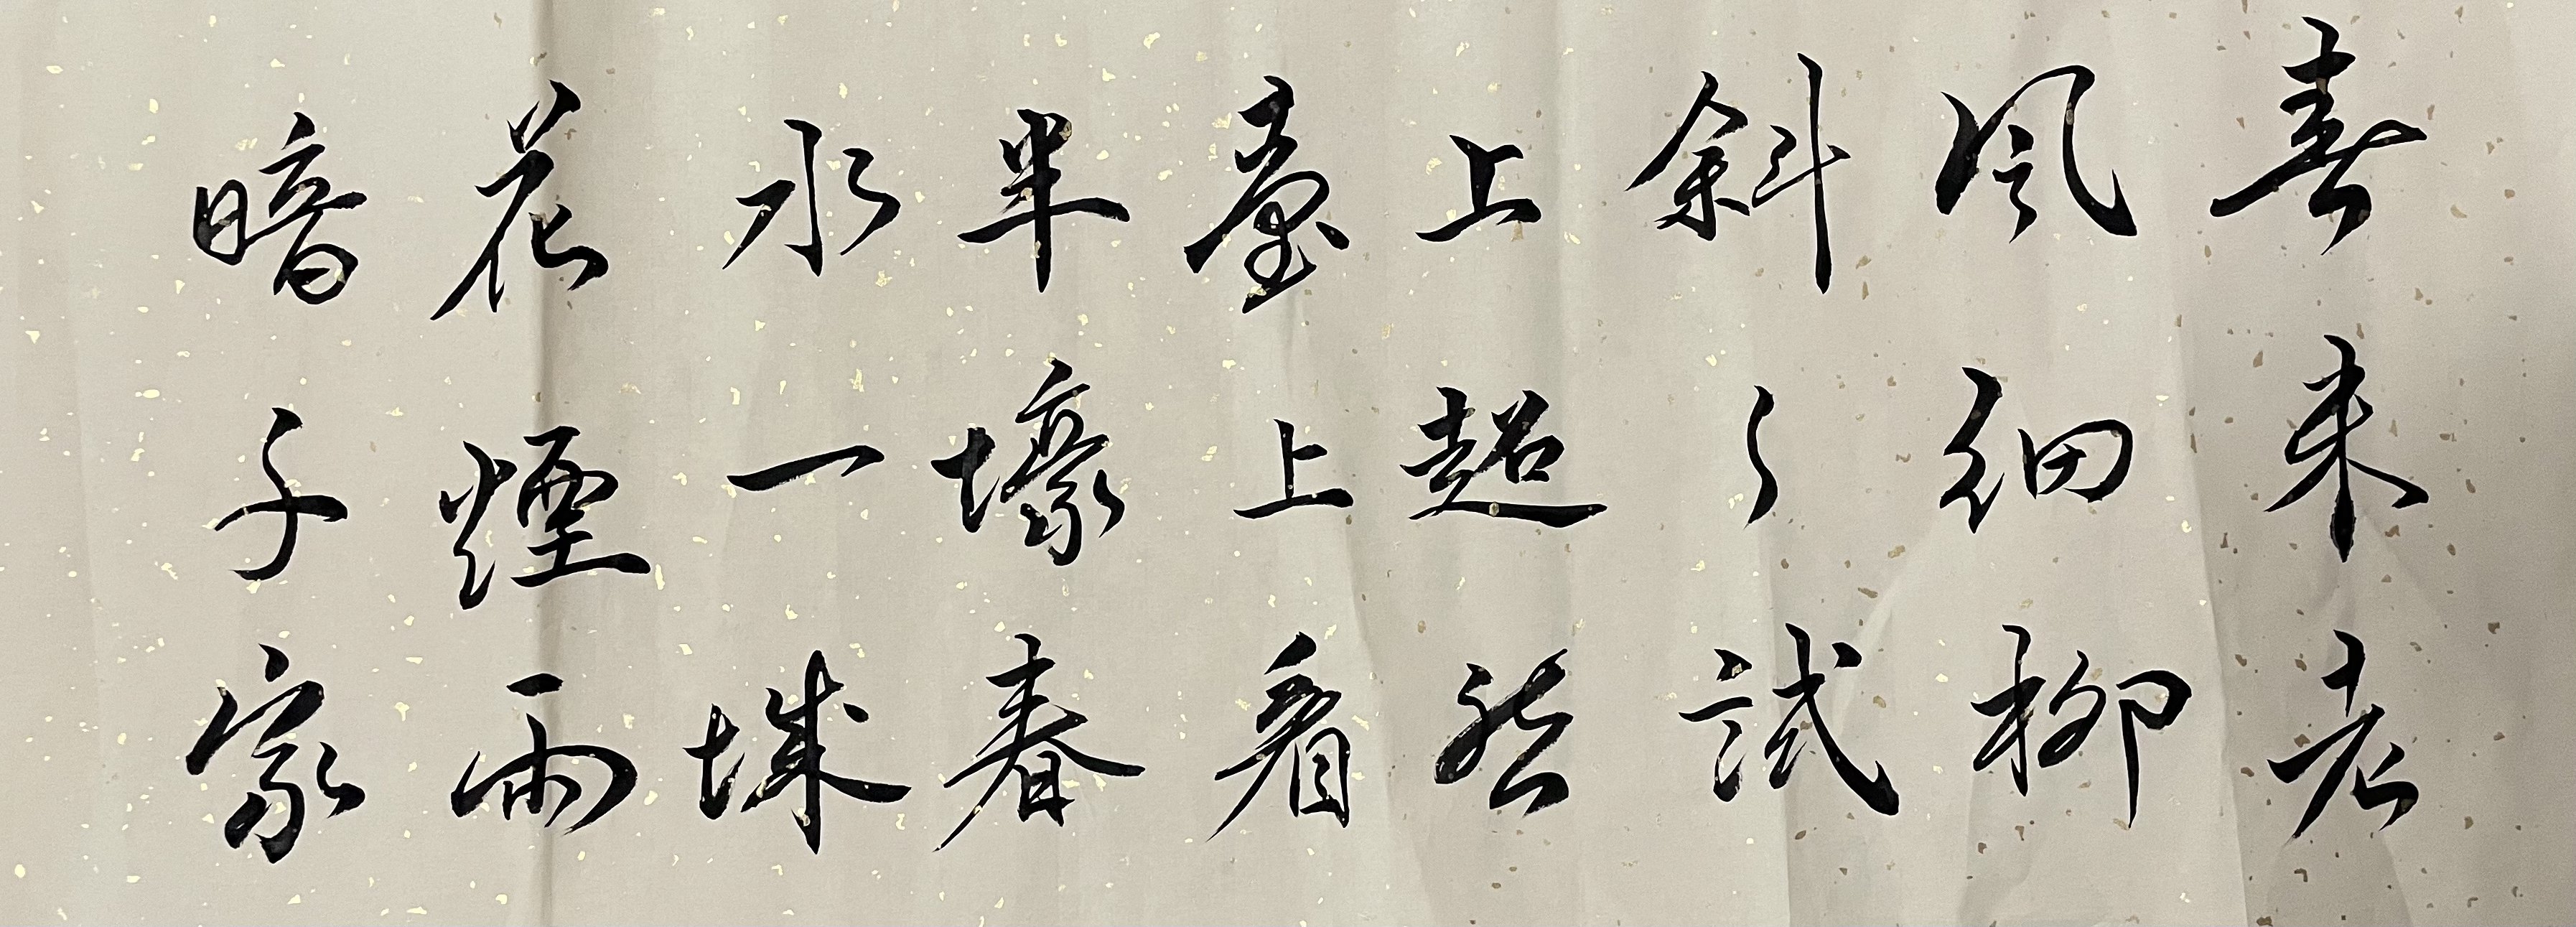 春未老
風細柳
斜々試
上超然
臺上看
半壕春
水一城
花煙雨
暗千家